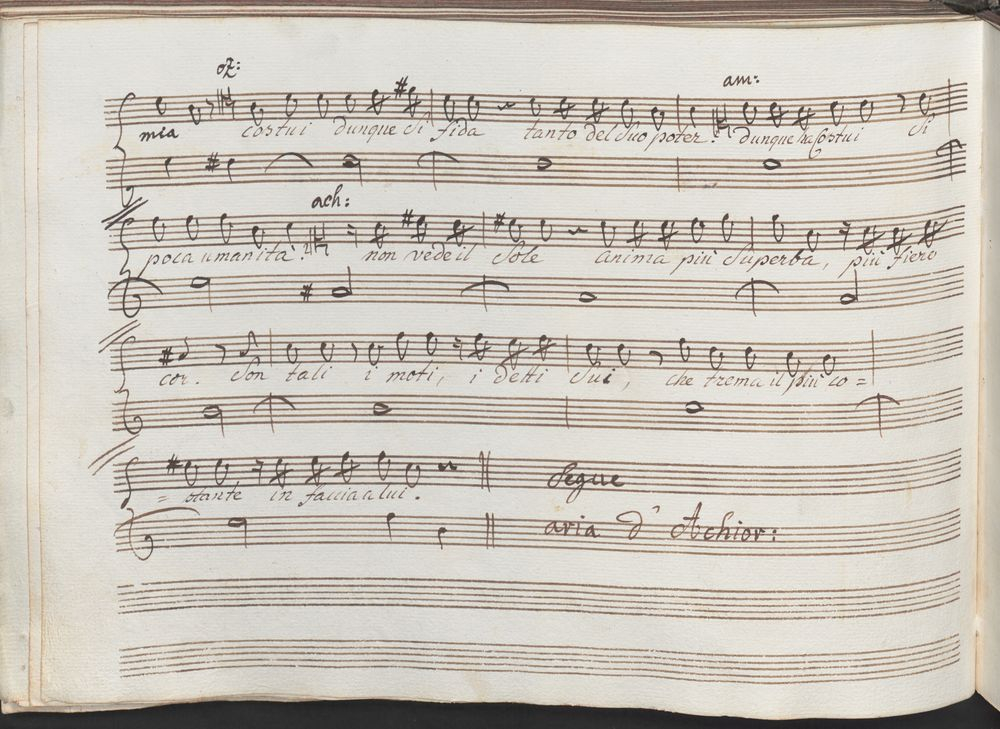 oz:
am:
mia costui dunque si fida tanto del suo poter? dunque ha costui si
ach:
poca umanità? non vede il sole anima più superba, più fiero
cor. Son tali i moti, i detti sui, che trema il più co=
=stante in faccia a lui. Segue
aria d' Achior: